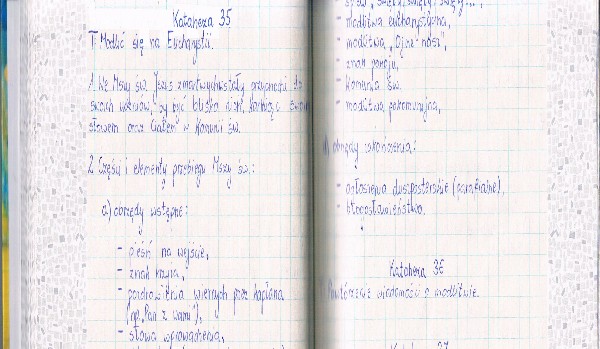 Katoheza 35
T: Modlić się na Eucharystii.
1. We Mszy św. Jezus zmartwychwstały przychodzi do
swoich uczniów, by być blisko nich, karmiąc swoim
słowem oraz Ciałem w Komunii św.
2. Części i elementy przebiegu Mszy św.:
a) obrzędy wstępne:
- pieśń na wejście,
- znak krzyża,
- pozdrowienia wiernych przez kapłana
(np. Pan z wami"),
- słowa wprowadzenia,
- modlitwa eucharystyczna,
- modlitwa „Ojcze nasz",
- znak pokoju,
- Komunia Św.
- modlitwa pokomunijna,
obrzędy zakończenia:
- ogłoszenia duszpasterskie (parafialne),
- błogosławieństwo.
Katoheza 36
Powtórzenie wiadomości o modlitwie.
37